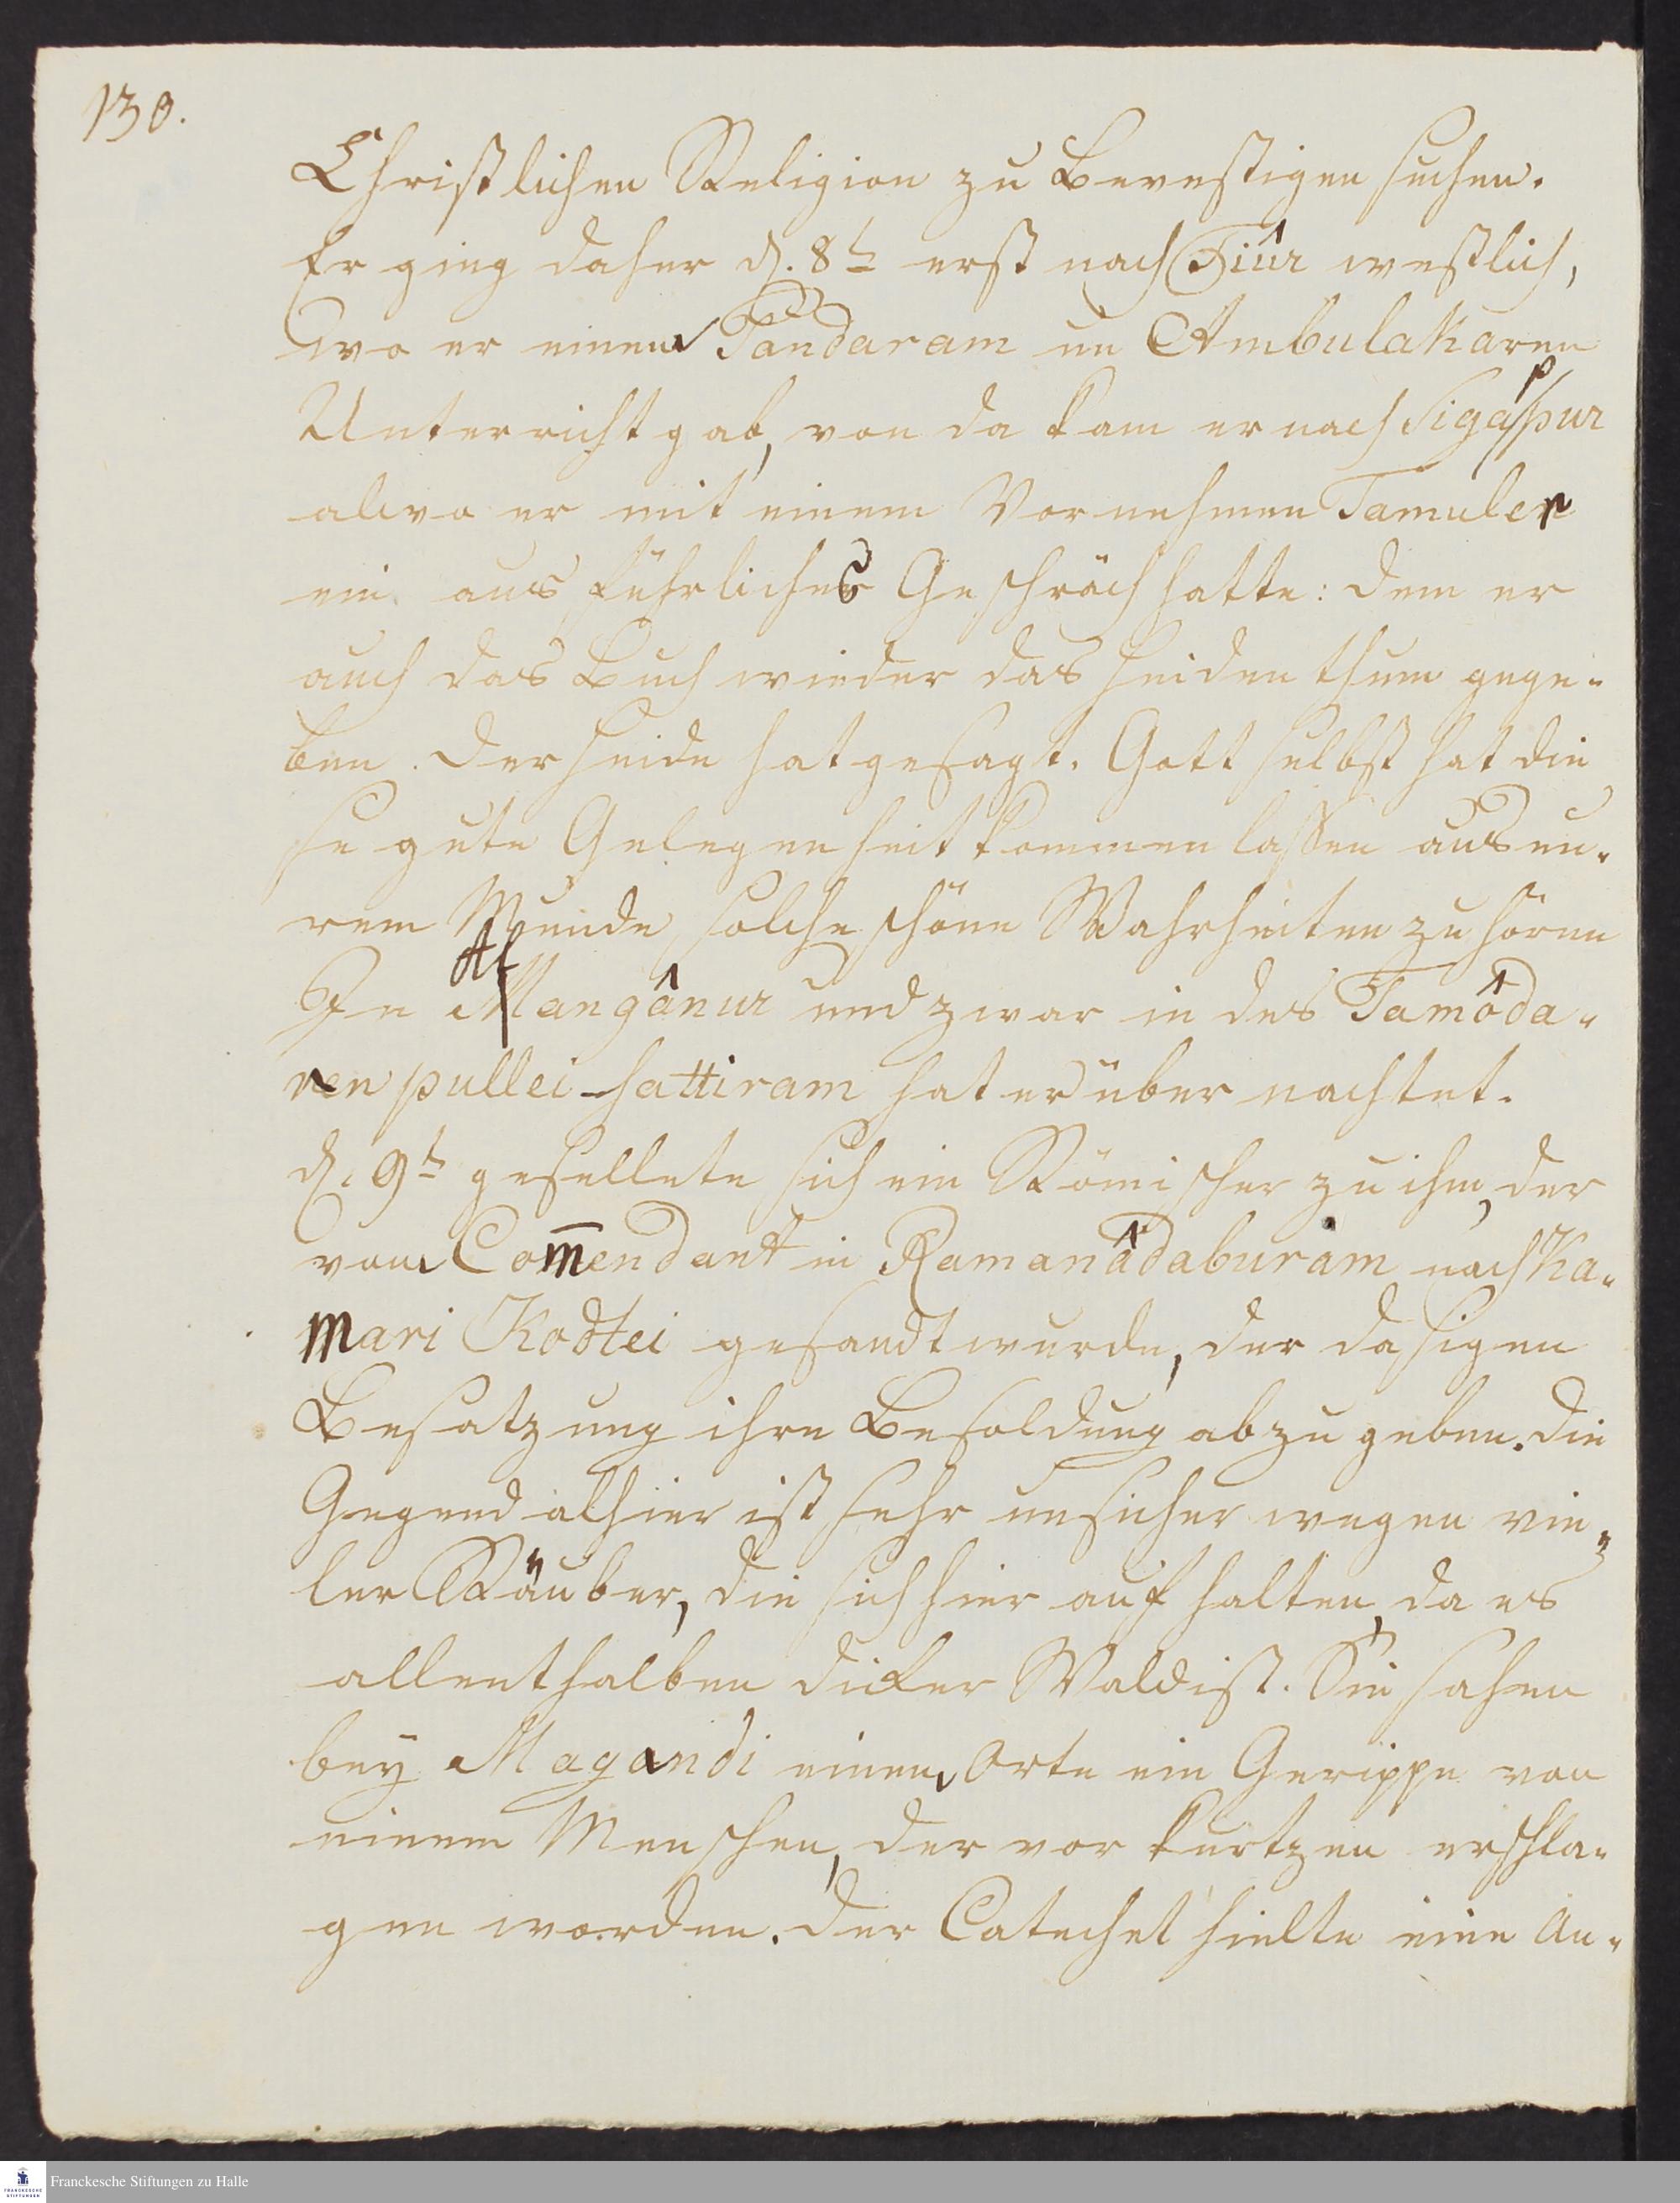 130.
Christlichen Religion zu bevestigen suchen.
Er ging daher d. 8t. erst nach Tiûr westlich,
wo er einen Pandaram un Ambulakaren
Unterricht gab, von da kam er nach Sigappur
alwo er mit einem Vornehmen Tamuler
ein ausführliches Gespräch hatte: dem er
auch das Buch wieder das Heidenthum gege-
ben. Der Heide hat gesagt. Gott selbst hat die
se gute Gelegenheit kommen lassen aus eu-
rem Munde, solche schöne Wahrheiten zu hören
In Mangânur und zwar in des Tamôda-
ren pullei-sattiram hat er über nachtet.
d. 9t. gesellete sich ein Römischer zu ihm, der
vom Com̄endant in Ramanâdaburam nach Ka-
mari Kodtei gesandt wurde, der dasigen
Besatzung ihre Besoldung abzugeben. Die
Gegend alhier ist sehr unsicher wegen vie-
ler Räuber, die sich hier aufhalten, da es
allenthalben dicker Wald ist. Sie sahen
bey Magandi einem Orte ein Gerippe von
einem Menschen, der vor kurtzen erschla-
gen worden. Der Catechet hielte eine An-
Franckesche Stiftungen zu Halle